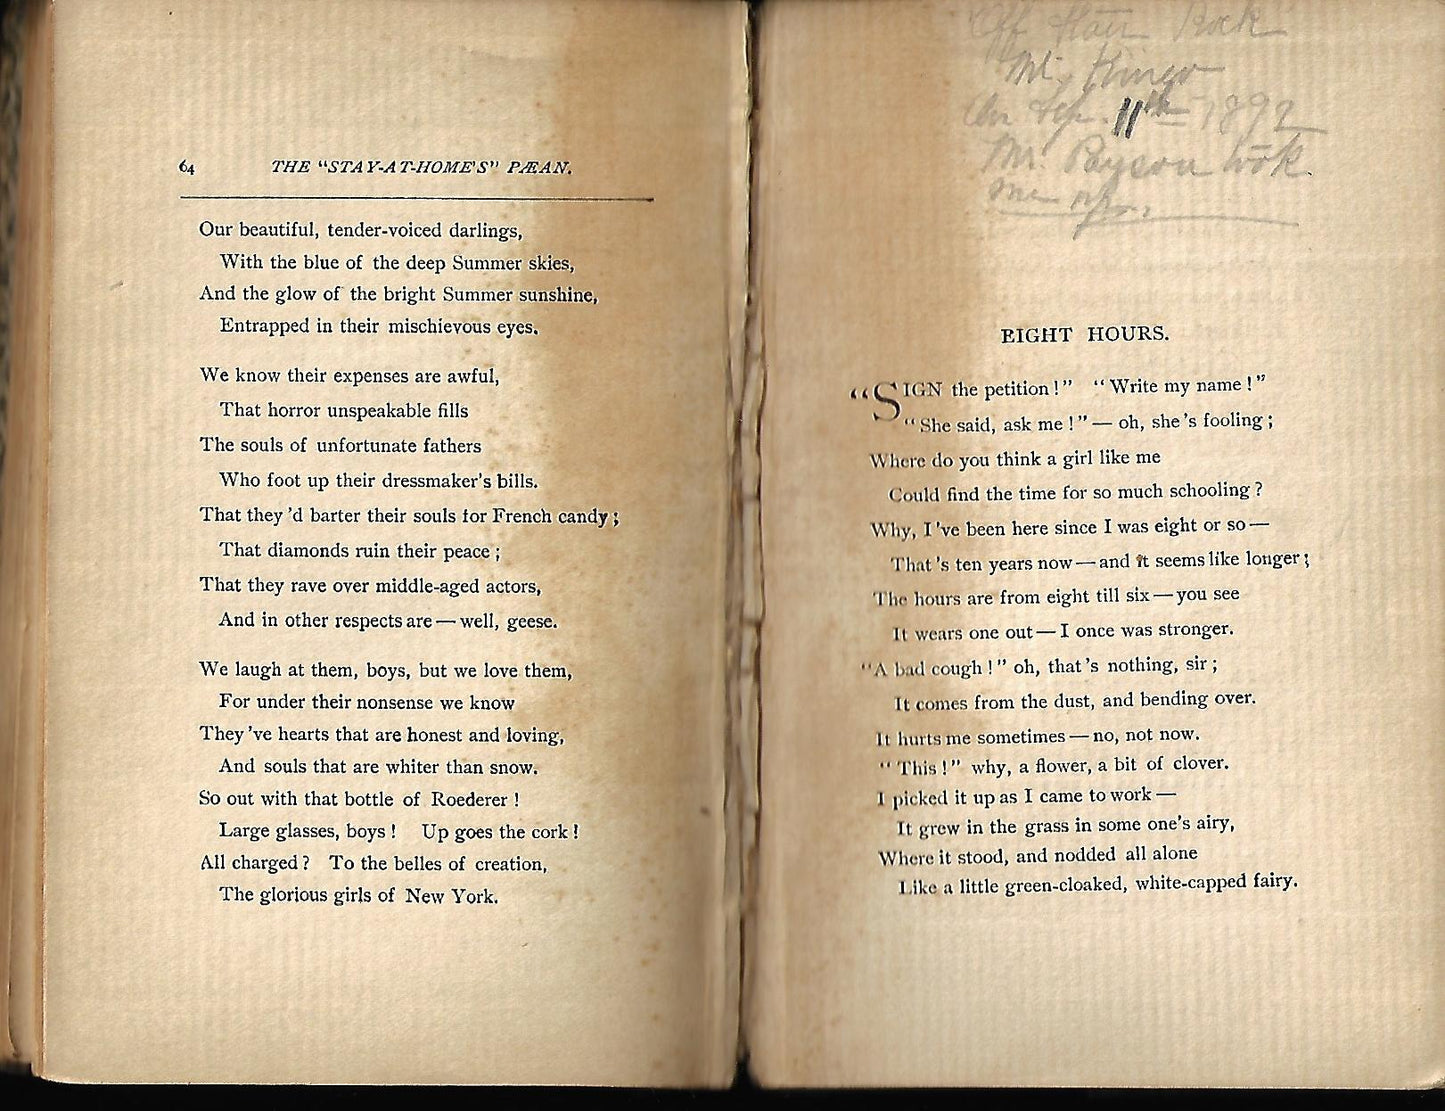 64 THE "STAY-AT-HOME'S" PÆAN.
Our beautiful, tender-voiced darlings,
With the blue of the deep Summer skies,
And the glow of the bright Summer sunshine,
Entrapped in their mischievous eyes.
We know their expenses are awful,
That horror unspeakable fills
The souls of unfortunate fathers
Who foot up their dressmaker's bills.
That they 'd barter their souls for French candy ;
That diamonds ruin their peace ;
That they rave over middle-aged actors,
And in other respects are — well, geese.
We laugh at them, boys, but we love them,
For under their nonsense we know
They 've hearts that are honest and loving,
And souls that are whiter than snow.
So out with that bottle of Roederer !
Large glasses, boys ! Up goes the cork !
All charged ? To the belles of creation,
The glorious girls of New York.
Off Stair Rock
Mt. Kineo
On Sep. 11th 1892
Mr. Payson took
me up.
EIGHT HOURS.
"SIGN the petition ! " " Write my name ! "
" She said, ask me ! " — oh, she 's fooling ;
Where do you think a girl like me
Could find the time for so much schooling ?
Why, I 've been here since I was eight or so —
That 's ten years now — and it seems like longer ;
The hours are from eight till six — you see
It wears one out — I once was stronger.
"A bad cough ! " oh, that 's nothing, sir ;
It comes from the dust, and bending over.
It hurts me sometimes — no, not now.
" This ! " why, a flower, a bit of clover.
I picked it up as I came to work —
It grew in the grass in some one's airy,
Where it stood, and nodded all alone
Like a little green-cloaked, white-capped fairy.